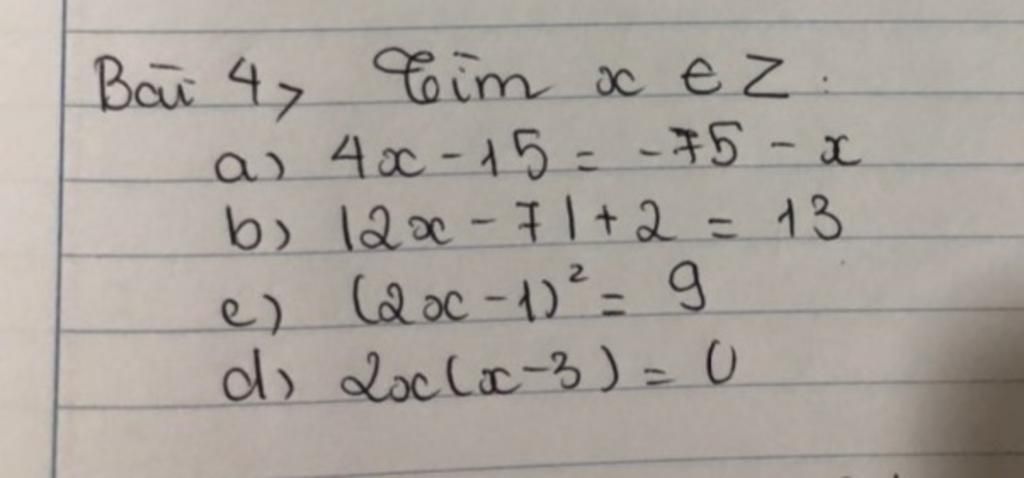 Bài 4, Tìm x ∈ Z:
a) 4x - 15 = -75 - x
b) |2x - 7| + 2 = 13
c) (2x - 1)² = 9
d) 2x(x - 3) = 0